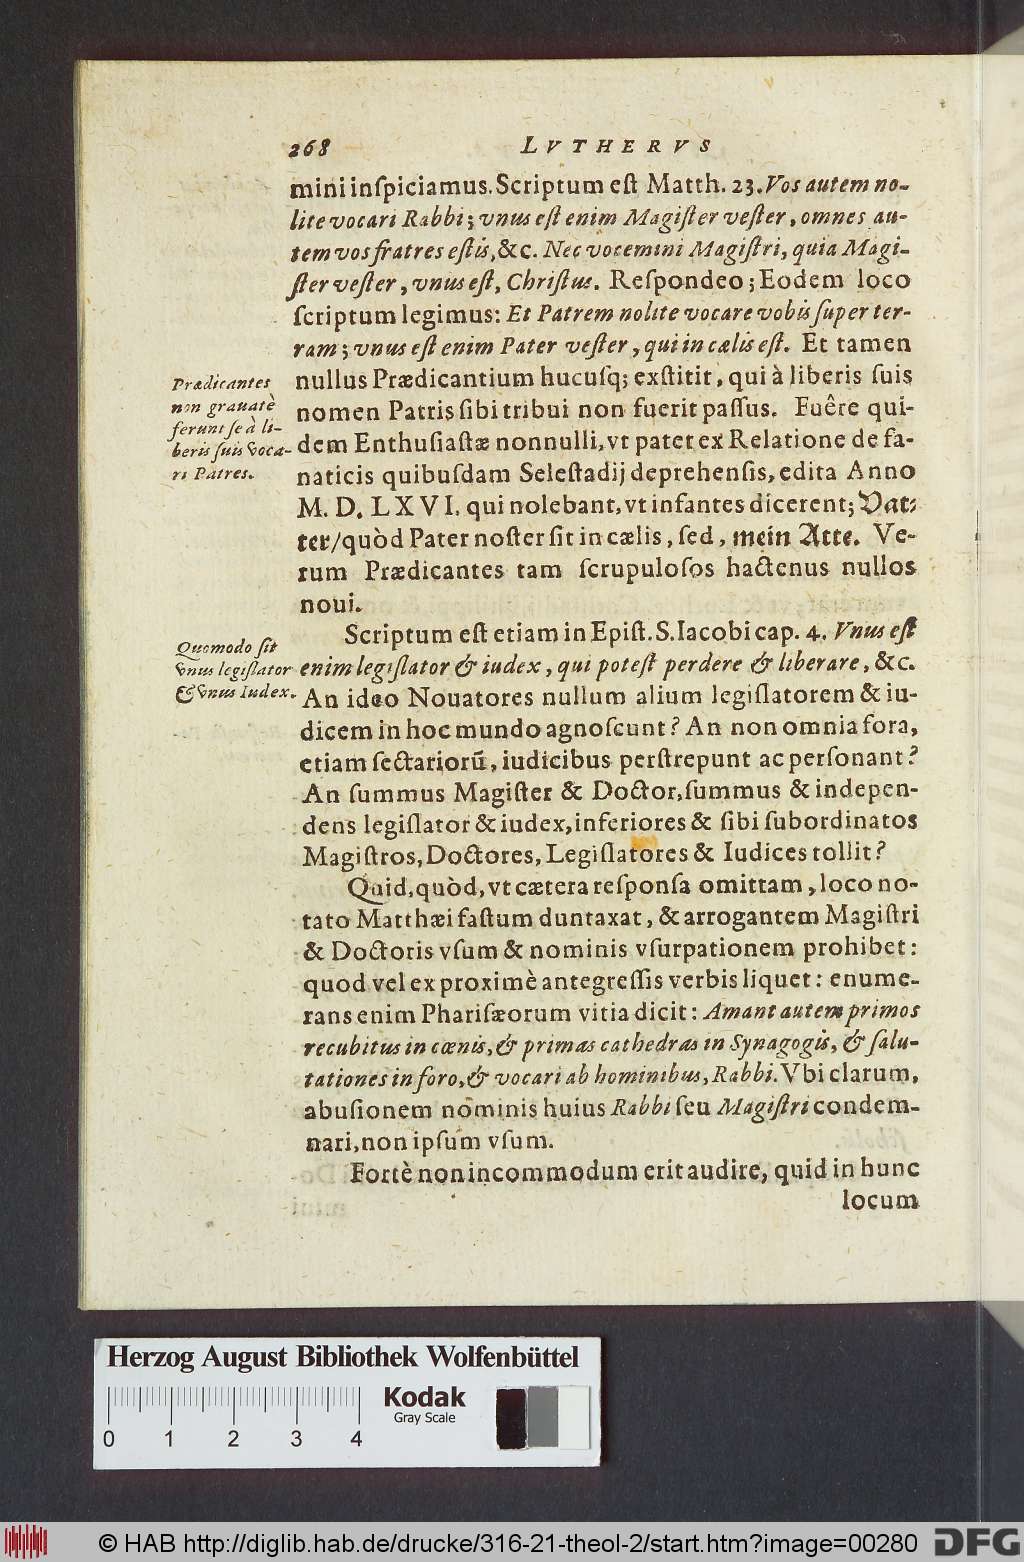 268 LVTHERVS
mini inſpiciamus. Scriptum eſt Matth. 23. Vos autem no-
lite vocari Rabbi; vnus eſt enim Magiſter veſter, omnes au-
tem vos fratres eſtis, &c. Nec vocemini Magiſtri, quia Magi-
ſter veſter, vnus eſt, Chriſtus. Reſpondeo; Eodem loco
ſcriptum legimus: Et Patrem nolite vocare vobis ſuper ter-
ram; vnus eſt enim Pater veſter, qui in cælis eſt. Et tamen
nullus Prædicantium hucuſq; exſtitit, qui à liberis ſuis
nomen Patris ſibi tribui non fuerit paſſus. Fuêre qui-
dem Enthuſiaſtæ nonnulli, vt patet ex Relatione de fa-
naticis quibuſdam Seleſtadij deprehenſis, edita Anno
M. D. LXVI. qui nolebant, vt infantes dicerent; Vat-
ter/ quòd Pater noſter ſit in cælis, ſed, mein Atte. Ve-
rum Prædicantes tam ſcrupuloſos hactenus nullos
noui.
Prædicantes
non grauatè
ferunt ſe à li-
beris ſuis voca-
ri Patres.
Scriptum eſt etiam in Epiſt. S. Iacobi cap. 4. Vnus eſt
enim legiſlator & iudex, qui poteſt perdere & liberare, &c.
An ideo Nouatores nullum alium legiſlatorem & iu-
dicem in hoc mundo agnoſcunt? An non omnia fora,
etiam ſectariorū, iudicibus perſtrepunt ac perſonant?
An ſummus Magiſter & Doctor, ſummus & indepen-
dens legiſlator & iudex, inferiores & ſibi ſubordinatos
Magiſtros, Doctores, Legiſlatores & Iudices tollit?
Quomodo ſit
vnus legiſlator
& vnus Iudex.
Quid, quòd, vt cætera reſponſa omittam, loco no-
tato Matthæi faſtum duntaxat, & arrogantem Magiſtri
& Doctoris vſum & nominis vſurpationem prohibet:
quod vel ex proximè antegreſſis verbis liquet: enume-
rans enim Phariſæorum vitia dicit: Amant autem primos
recubitus in cœnis, & primas cathedras in Synagogis, & ſalu-
tationes in foro, & vocari ab hominibus, Rabbi. Vbi clarum,
abuſionem nominis huius Rabbi ſeu Magiſtri condem-
nari, non ipſum vſum.
Fortè non incommodum erit audire, quid in hunc
locum
Herzog August Bibliothek Wolfenbüttel
0 1 2 3 4
Kodak
Gray Scale
© HAB http://diglib.hab.de/drucke/316-21-theol-2/start.htm?image=00280 DFG